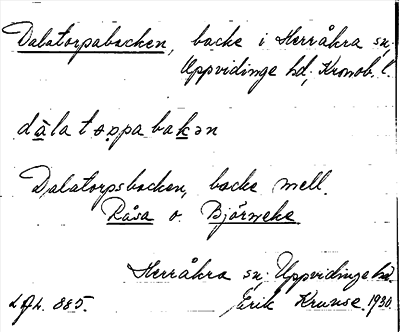 Dalatorpabacken, backe i Herråkra sn,
Uppvidinge hd, Kronob. l.
dàlatoppabakən
Dalatorpsbacken, backe mell.
Råsa o. Björneke
Herråkra sn, Uppvidinge hd.
L.A.L. 885. Erik Kruuse. 1930.